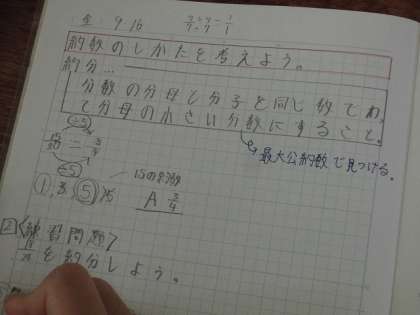 金 9 16
約数のしかたを考えよう。
約分…
分数の分母と分子を同じ数でわっ
て分母の小さい分数にすること。
最大公約数で見つける。
÷5
15/20 = 3/4
÷5
15の約数
①, 3, ⑤, 15
A 3/4
2 〈練習問題〉
を約分しよう。